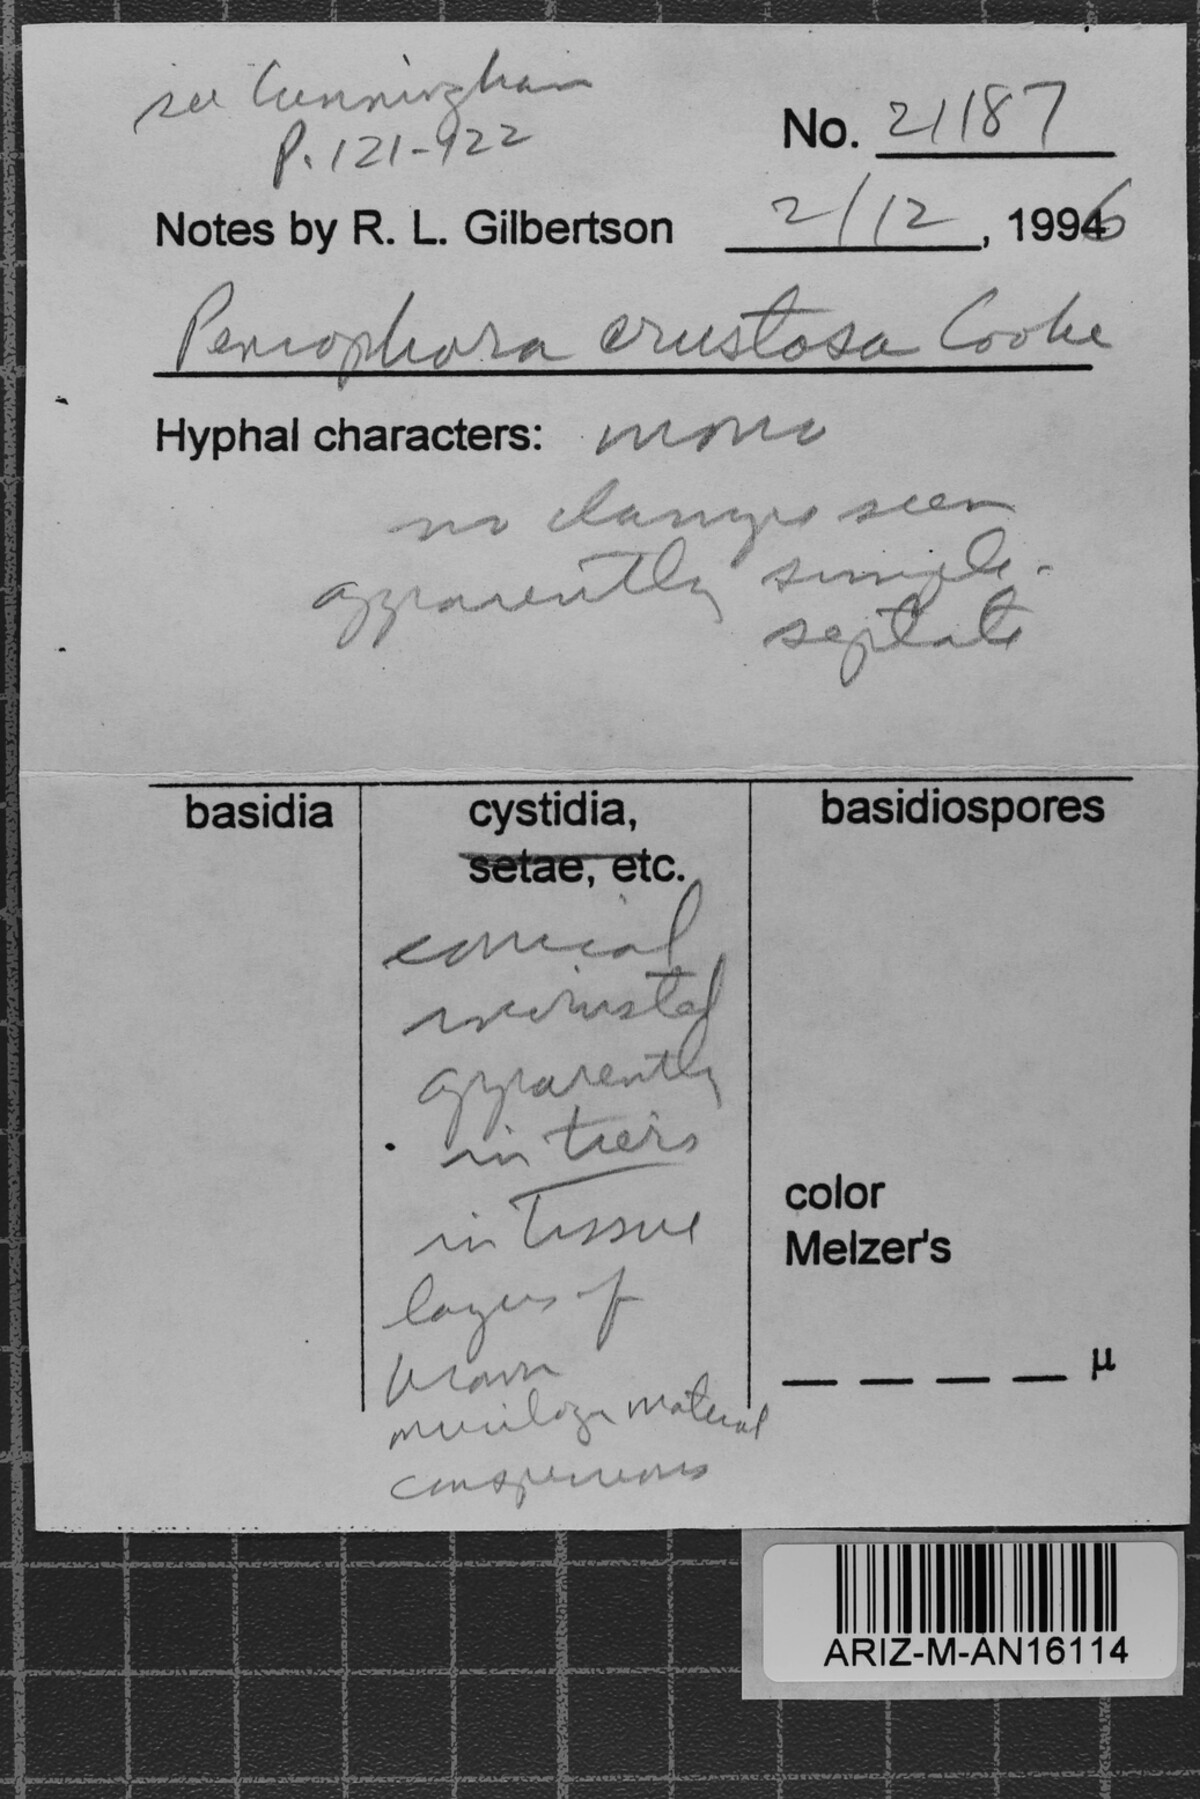 see Cunningham
P. 121-122
No. 21187
Notes by R. L. Gilbertson 2/12, 1996
Peniophora crustosa Cooke
Hyphal characters: mono
no clamps seen
apparently simple-
septate
basidia
cystidia,
setae, etc.
basidiospores
conical
incrusted
apparently
in tiers
in tissue
layers of
brown
mucilage material
conspicuous
color
Melzer's
— — — — µ
ARIZ-M-AN16114